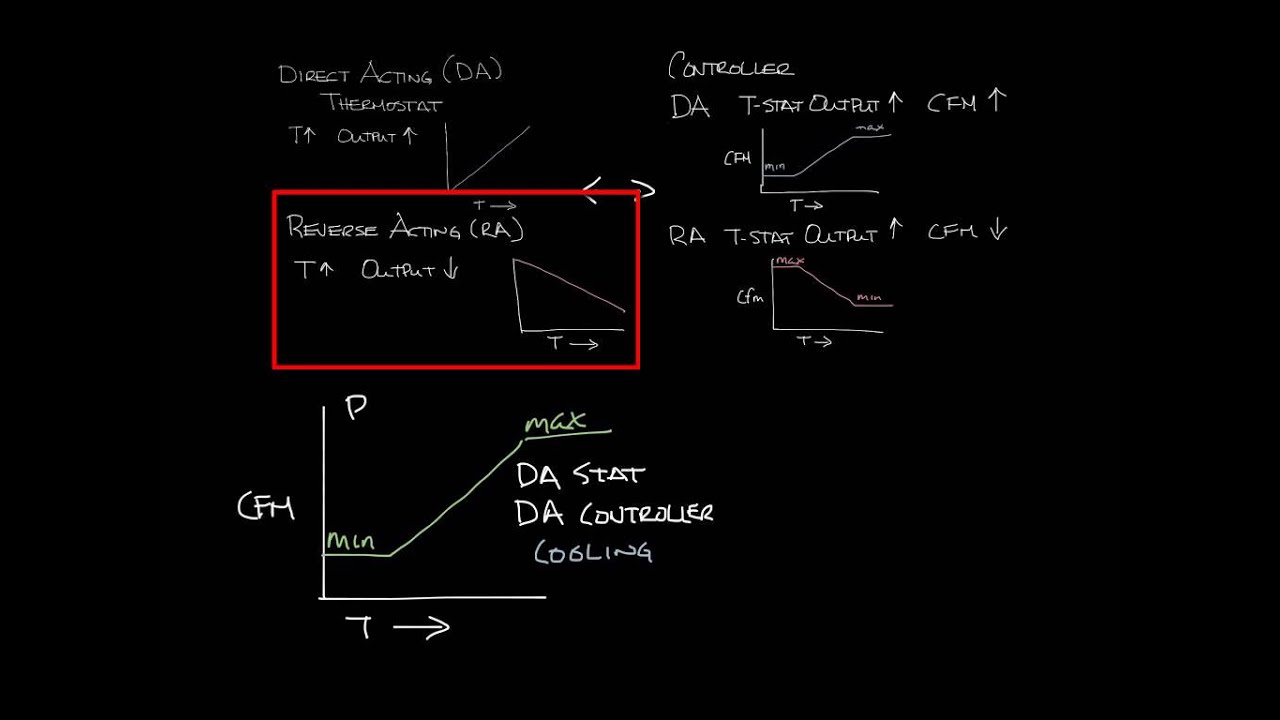 DIRECT ACTING (DA)
THERMOSTAT
T↑ OUTPUT ↑
T →
REVERSE ACTING (RA)
T↑ OUTPUT ↓
T →
CONTROLLER
DA T-STAT OUTPUT ↑ CFM ↑
max
CFM
min
T →
RA T-STAT OUTPUT ↑ CFM ↓
max
Cfm
min
T →
P
max
DA STAT
CFM
DA CONTROLLER
min
COOLING
T →